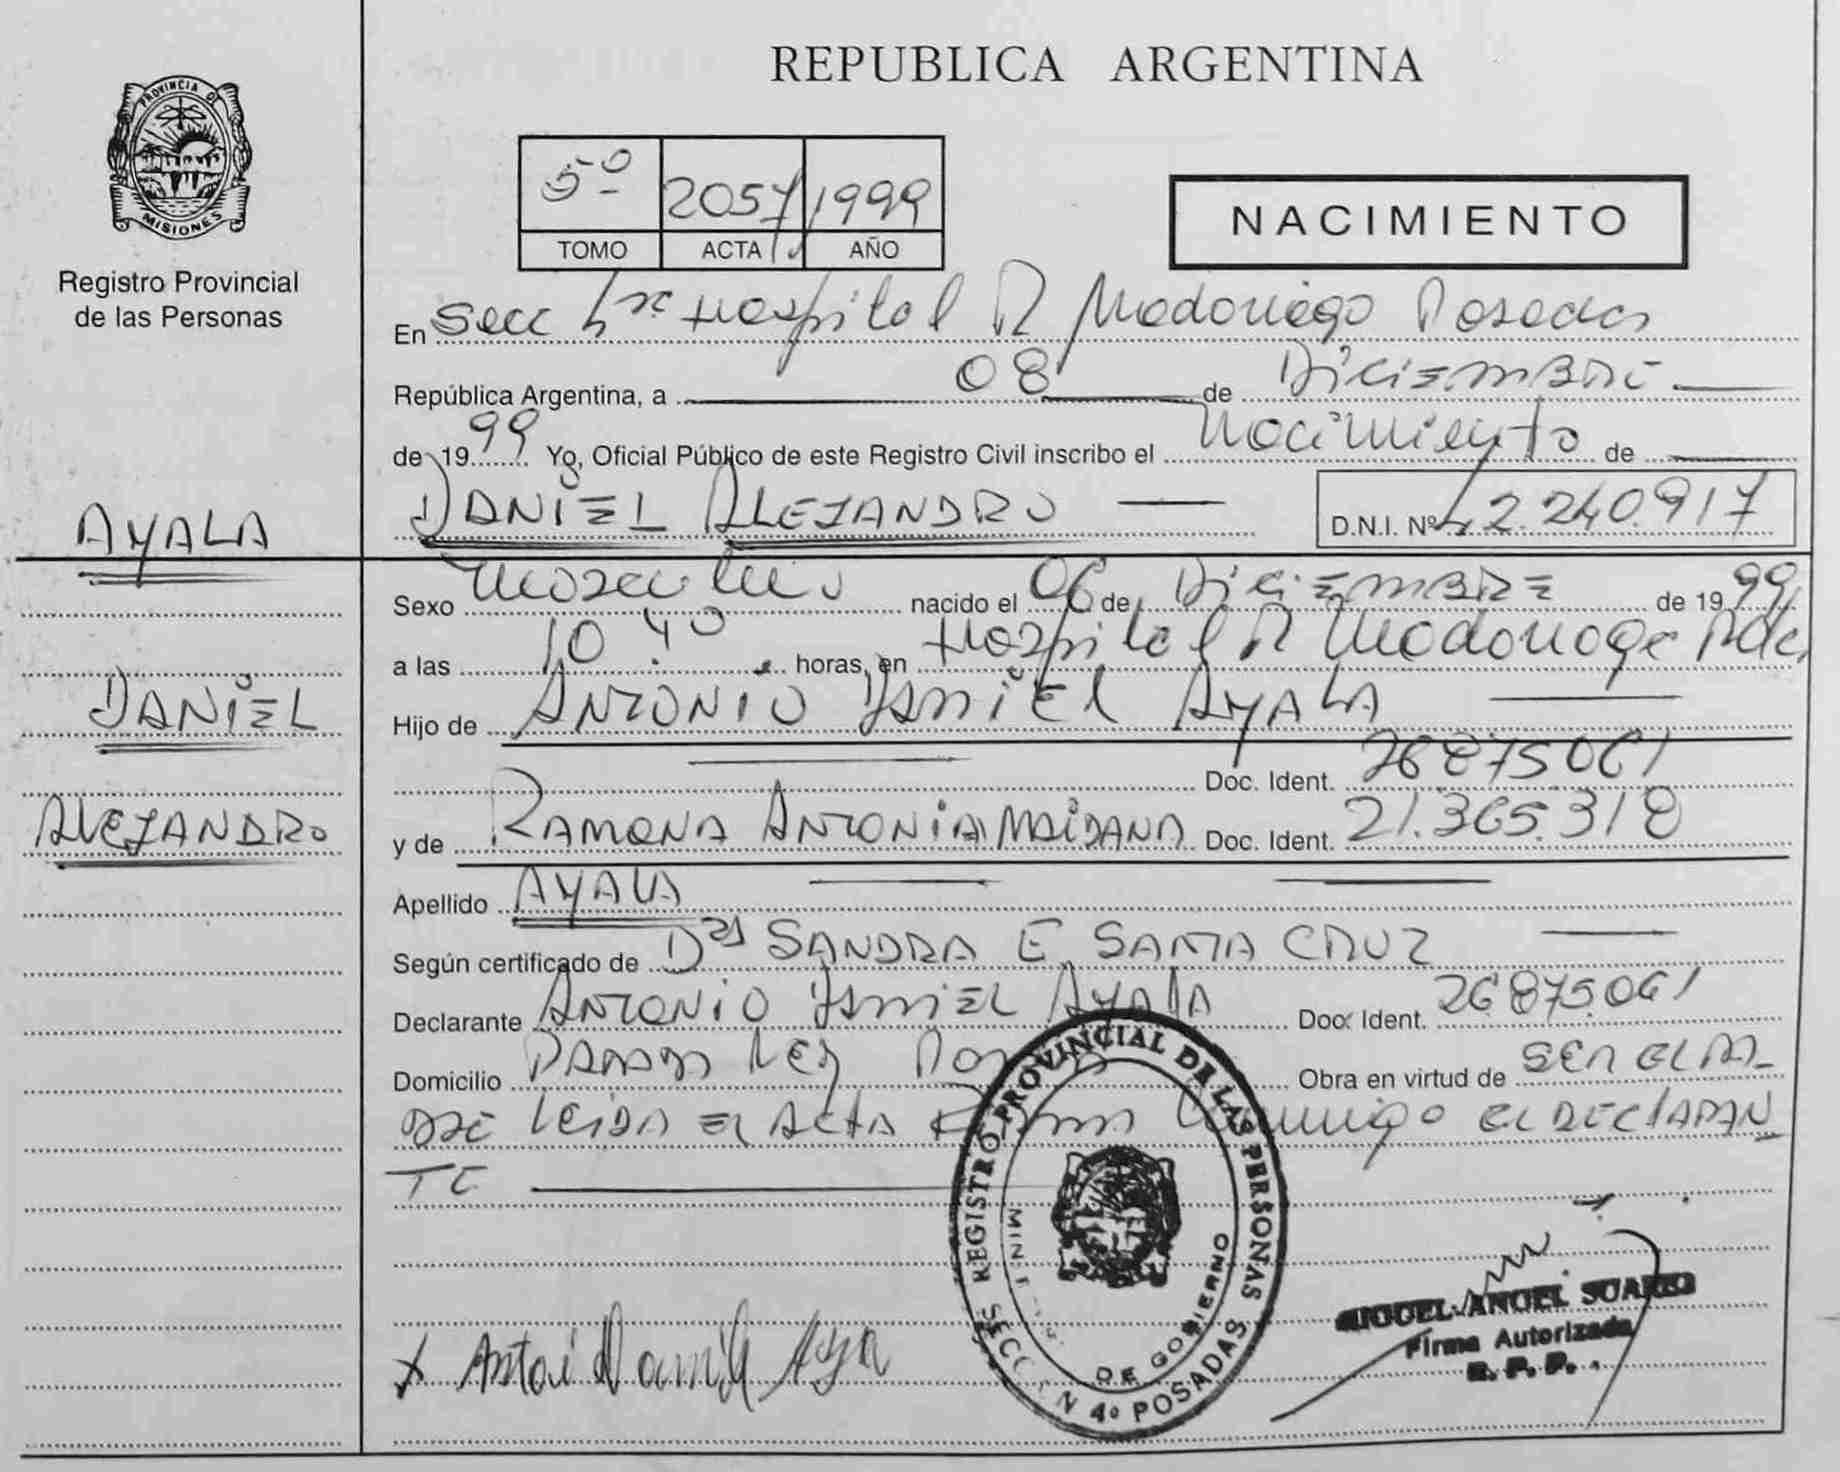 REPUBLICA ARGENTINA
PROVINCIA DE
MISIONES
Registro Provincial
de las Personas
5º 2057 1999
TOMO ACTA AÑO
NACIMIENTO
En Secc 4ta Hospital R Madariaga Posadas
República Argentina, a 08 de Diciembre
de 1999 Yo, Oficial Público de este Registro Civil inscribo el Nacimiento de
DANIEL ALEJANDRO D.N.I. Nº 42.240.917
AYALA
DANIEL
ALEJANDRO
Sexo Masculino nacido el 06 de DiCiEMBRE de 1999
a las 10.40 horas, en Hospital R Madariaga Pdas
Hijo de ANTONIO DANiEL AYALA
Doc. Ident. 26875061
y de RAMONA ANTONiA MAiDANA Doc. Ident. 21.365.318
Apellido AYALA
Según certificado de Dra SANDRA E SANTA CRUZ
Declarante ANTONIO DANiEL AYALA Doc. Ident. 26.875.061
Domicilio Posadas Obra en virtud de SER EL PA-
DRE LEiDA EL ACTA FiRMA Conmigo EL DECLARAN
TE
REGISTRO PROVINCIAL DE LAS PERSONAS
DE GOBIERNO
SECCION 4º POSADAS
MIGUEL ANGEL SUAREZ
Firma Autorizada
R. P. P.